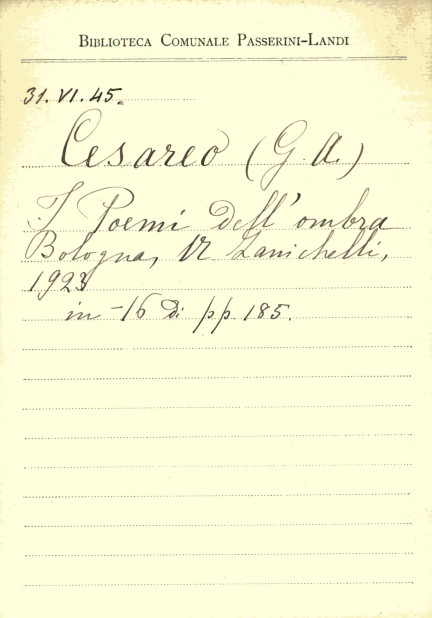 BIBLIOTECA COMUNALE PASSERINI-LANDI
31. VI. 45.
Cesareo (G. A.)
I Poemi dell' ombra
Bologna, N Zanichelli,
1923
in -16 di pp. 185.